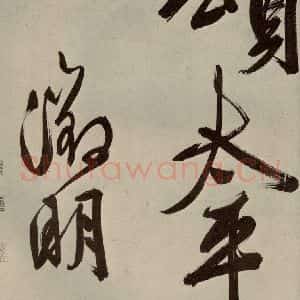 頌
太平
徵明
Shufawang.CN